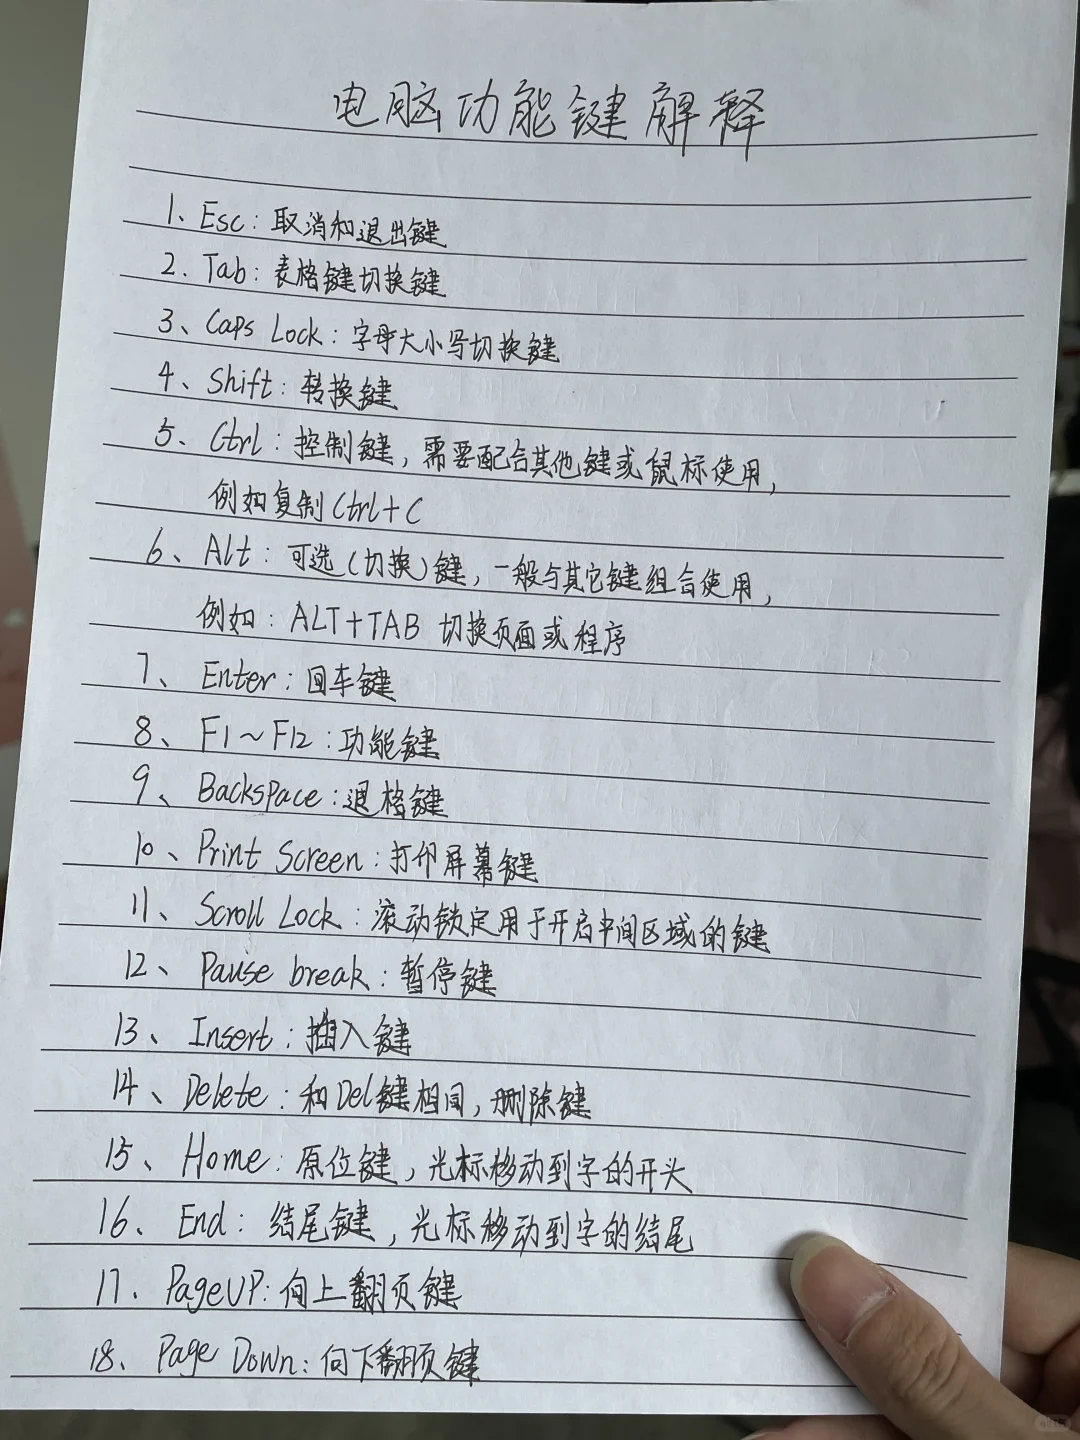 电脑功能键解释
1、Esc：取消和退出键
2. Tab：表格键切换键
3、Caps Lock：字母大小写切换键
4、Shift：转换键
5、Ctrl：控制键，需要配合其他键或鼠标使用，
例如复制Ctrl+C
6、Alt：可选（切换）键，一般与其它键组合使用，
例如：ALT+TAB 切换页面或程序
7、Enter：回车键
8、F1～F12：功能键
9、Backspace：退格键
10、Print Screen：打印屏幕键
11、Scroll Lock：滚动锁定用于开启中间区域的键
12、Pause break：暂停键
13、Insert：插入键
14、Delete：和Del键相同，删除键
15、Home：原位键，光标移动到字的开头
16、End：结尾键，光标移动到字的结尾
17、PageUP：向上翻页键
18、Page Down：向下翻页键